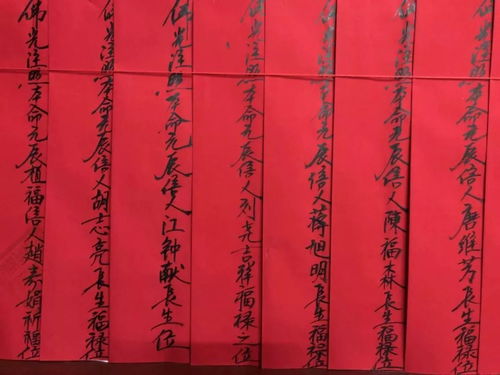 佛光注照本命元辰信人唐維芳長生福祿位
佛光注照本命元辰信人陳福森長生福祿位
佛光注照本命元辰信人蔣旭明長生福祿位
佛光注照本命元辰信人刘尧吉祥福禄之位
佛光注照本命元辰信人江钟長生位
佛光注照本命元辰信人胡志亮長生福祿位
佛光注照本命元辰植福信人趙娟祈福位